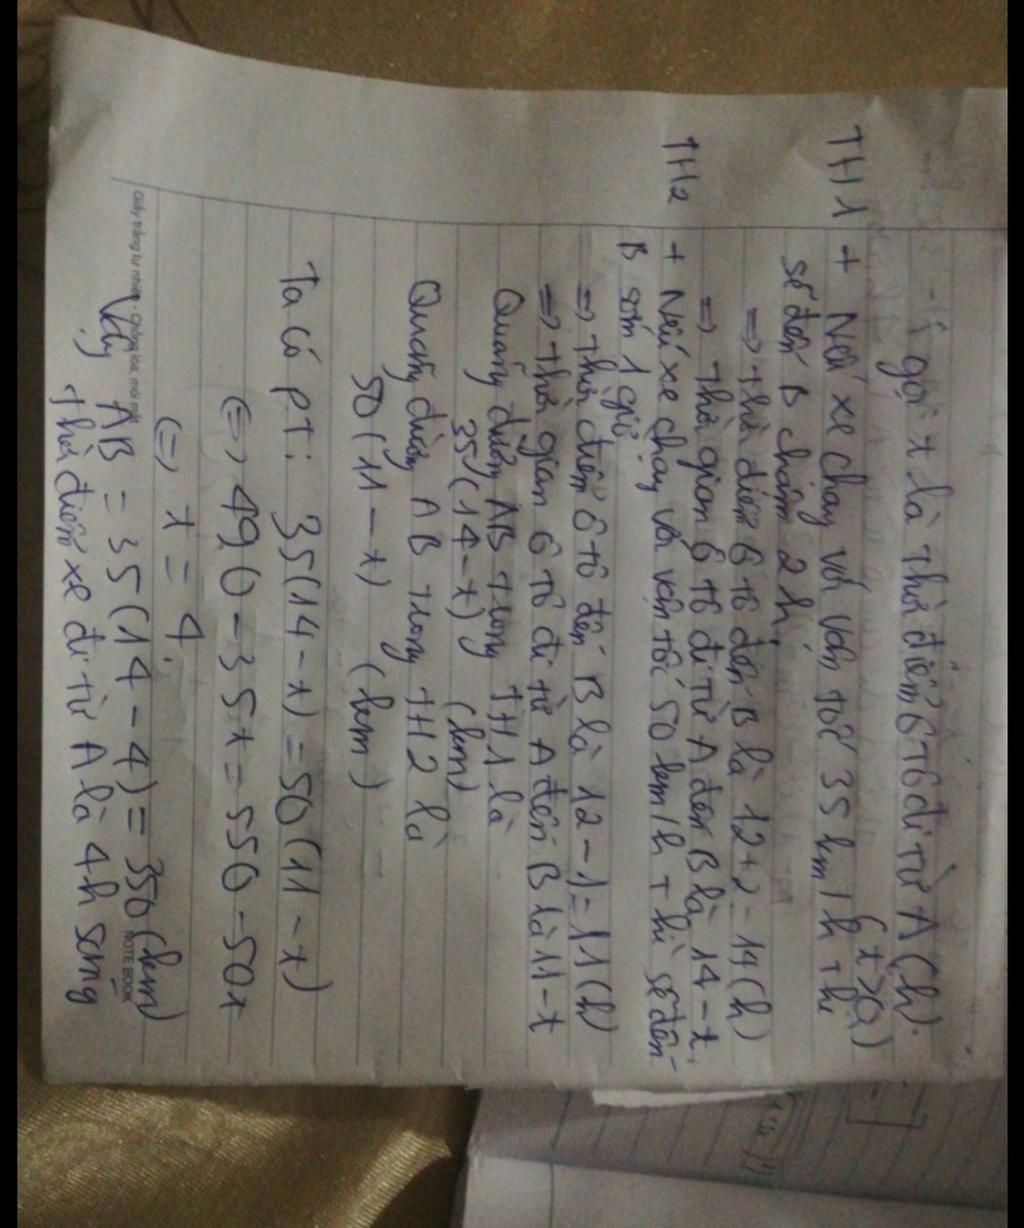 gọi x là thời điểm ô tô đi từ A (h).
(x > 0)
TH1 + Nếu xe chạy với vận tốc 35 km/h thì
sẽ đến B chậm 2h.
=> thời điểm ô tô đến B là 12+2=14(h)
=> thời gian ô tô đi từ A đến B là 14-x.
TH2 + Nếu xe chạy với vận tốc 50 km/h thì sẽ đến
B sớm 1 giờ.
=> thời điểm ô tô đến B là 12-1=11(h)
=> thời gian ô tô đi từ A đến B là 11-x
Quãng đường AB trong TH1 là
35(14-x) (km)
Quãng đường AB trong TH2 là
50(11-x) (km)
Ta có PT: 35(14-x)=50(11-x)
(=) 490-35x=550-50x
(=) x=4.
Vậy AB = 35(14-4)=350(km)
thời điểm xe đi từ A là 4h sáng
Giấy trắng tự nhiên - Chống lóa, mỏi mắt
NOTE BOOK